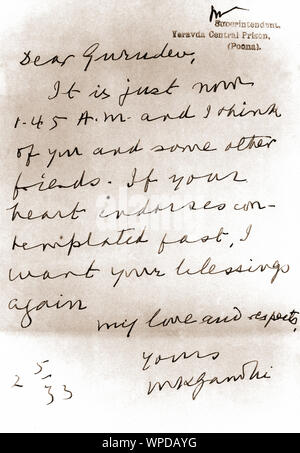 Superintendent,
Yeravda Central Prison,
(Poona).
Dear Gurudev,
It is just now
1-45 A.M. and I think
of you and some other
friends. If your
heart endorses con-
templated fast, I
want your blessings
again
my love and respects,
yours
MKGandhi
2 5/33
alamy
alamy
www.alamy.com
WPDAYG